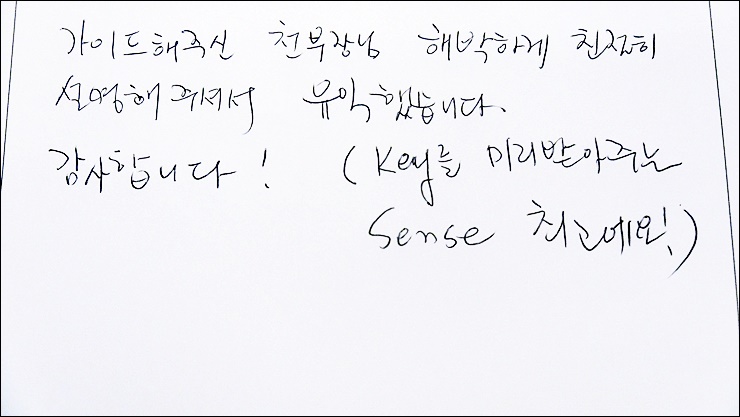 가이드해주신 천부장님 해박하게 친절히
설명해주셔서 유익했습니다.
감사합니다! (Key를 미리받아주는
Sense 최고예요!)